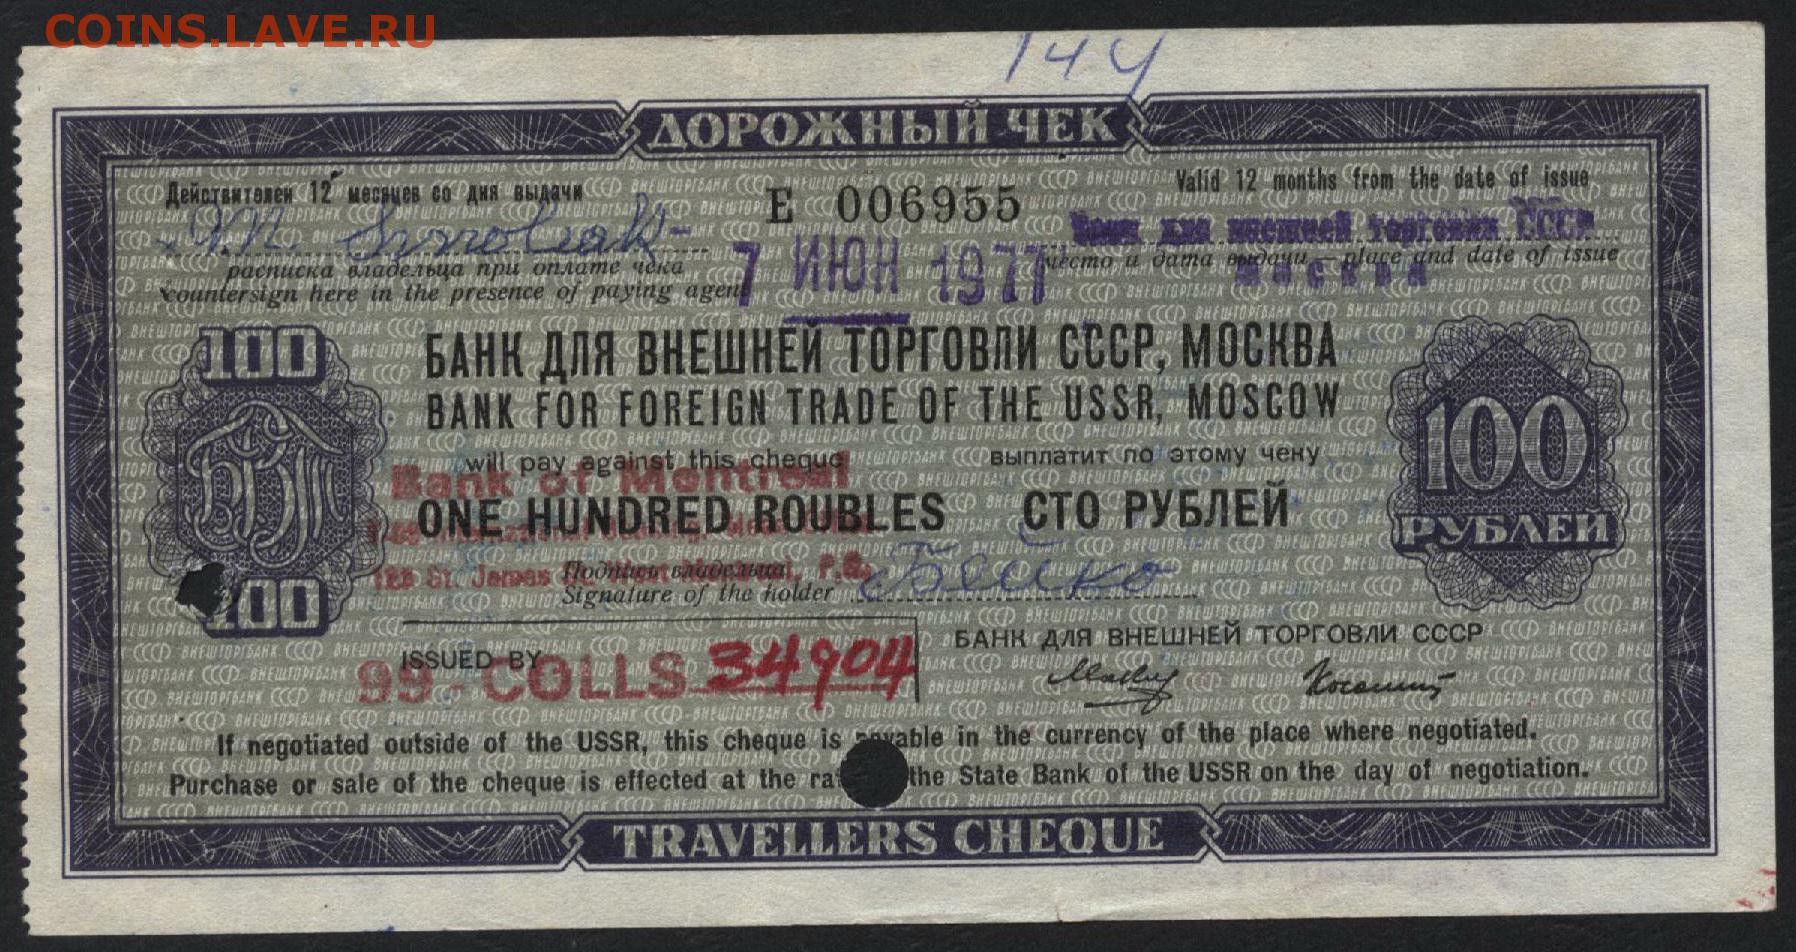 COINS.LAVE.RU
144
ДОРОЖНЫЙ ЧЕК
Действителен 12 месяцев со дня выдачи
Е 006955
Valid 12 months from the date of issue
Банк для внешней торговли СССР
Москва
7 ИЮН 1977
расписка владельца при оплате чека
место и дата выдачи — place and date of issue
countersign here in the presence of paying agent
100
БАНК ДЛЯ ВНЕШНЕЙ ТОРГОВЛИ СССР, МОСКВА
BANK FOR FOREIGN TRADE OF THE USSR, MOSCOW
БВТ
100
РУБЛЕЙ
will pay against this cheque
выплатит по этому чеку
Bank of Montreal
ONE HUNDRED ROUBLES СТО РУБЛЕЙ
129 St. James P.Q.
Подпись владельца
Signature of the holder
100
БАНК ДЛЯ ВНЕШНЕЙ ТОРГОВЛИ СССР
ISSUED BY
99-COLLS 34904
If negotiated outside of the USSR, this cheque is payable in the currency of the place where negotiated.
Purchase or sale of the cheque is effected at the the State Bank of the USSR on the day of negotiation.
TRAVELLERS CHEQUE